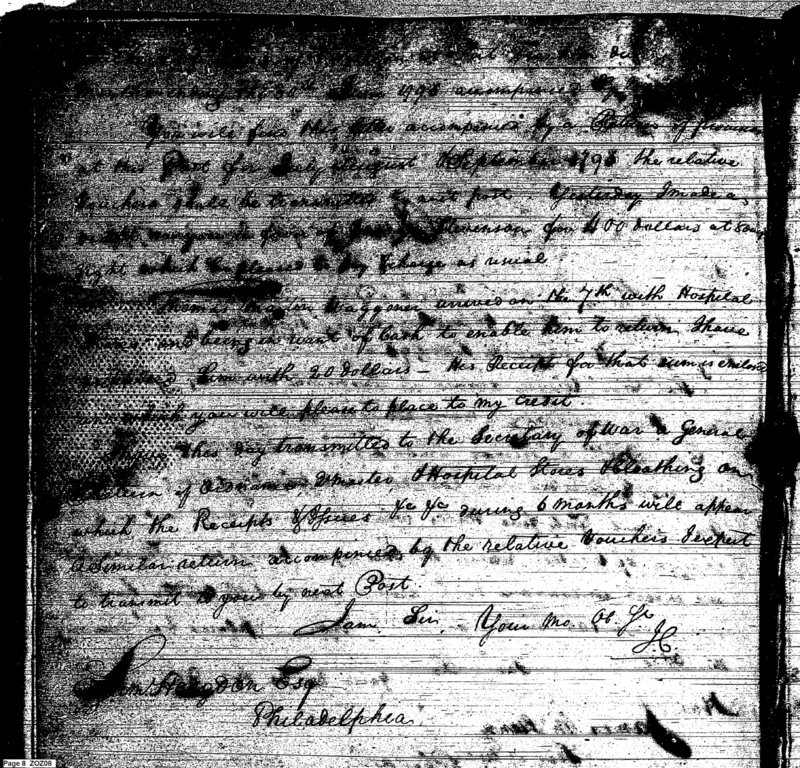 month ending the 30th June 1795 accompanied
You will find this also accompanied by a Return of
at this Post for July August & September 1795 the relative
Vouchers shall be transmitted by next post. Yesterday I made a
on you in favor of Stevenson for 400 dollars at
sight which be pleased to & charge as usual
Thomas Waggoner arrived on the 7th with Hospital
Stores and being in want of Cash to enable him to return I have
him with 20 dollars – His Receipt for that sum is enclosed
which you will please to place to my credit.
I have this day transmitted to the Secretary of War a General
Return of Ordnance, Qr Master, & Hospital Stores & Cloathing on
which the Receipts & Issues &c &c during 6 months will appear
A similar return accompanied by the relative Vouchers I expect
to transmit to you by next Post.
I am Sir Your Mo Ob St
J.C.
Saml Hodgdon Esq
Philadelphia
Page 8 ZOZ08